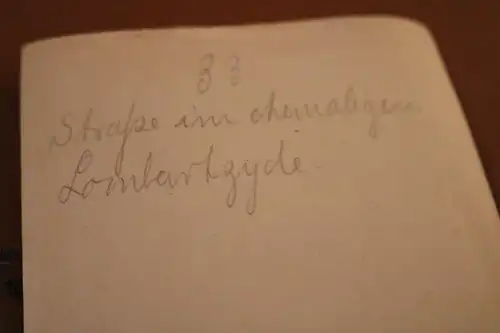 33
Straße im ehemaligen
Lombartzyde.